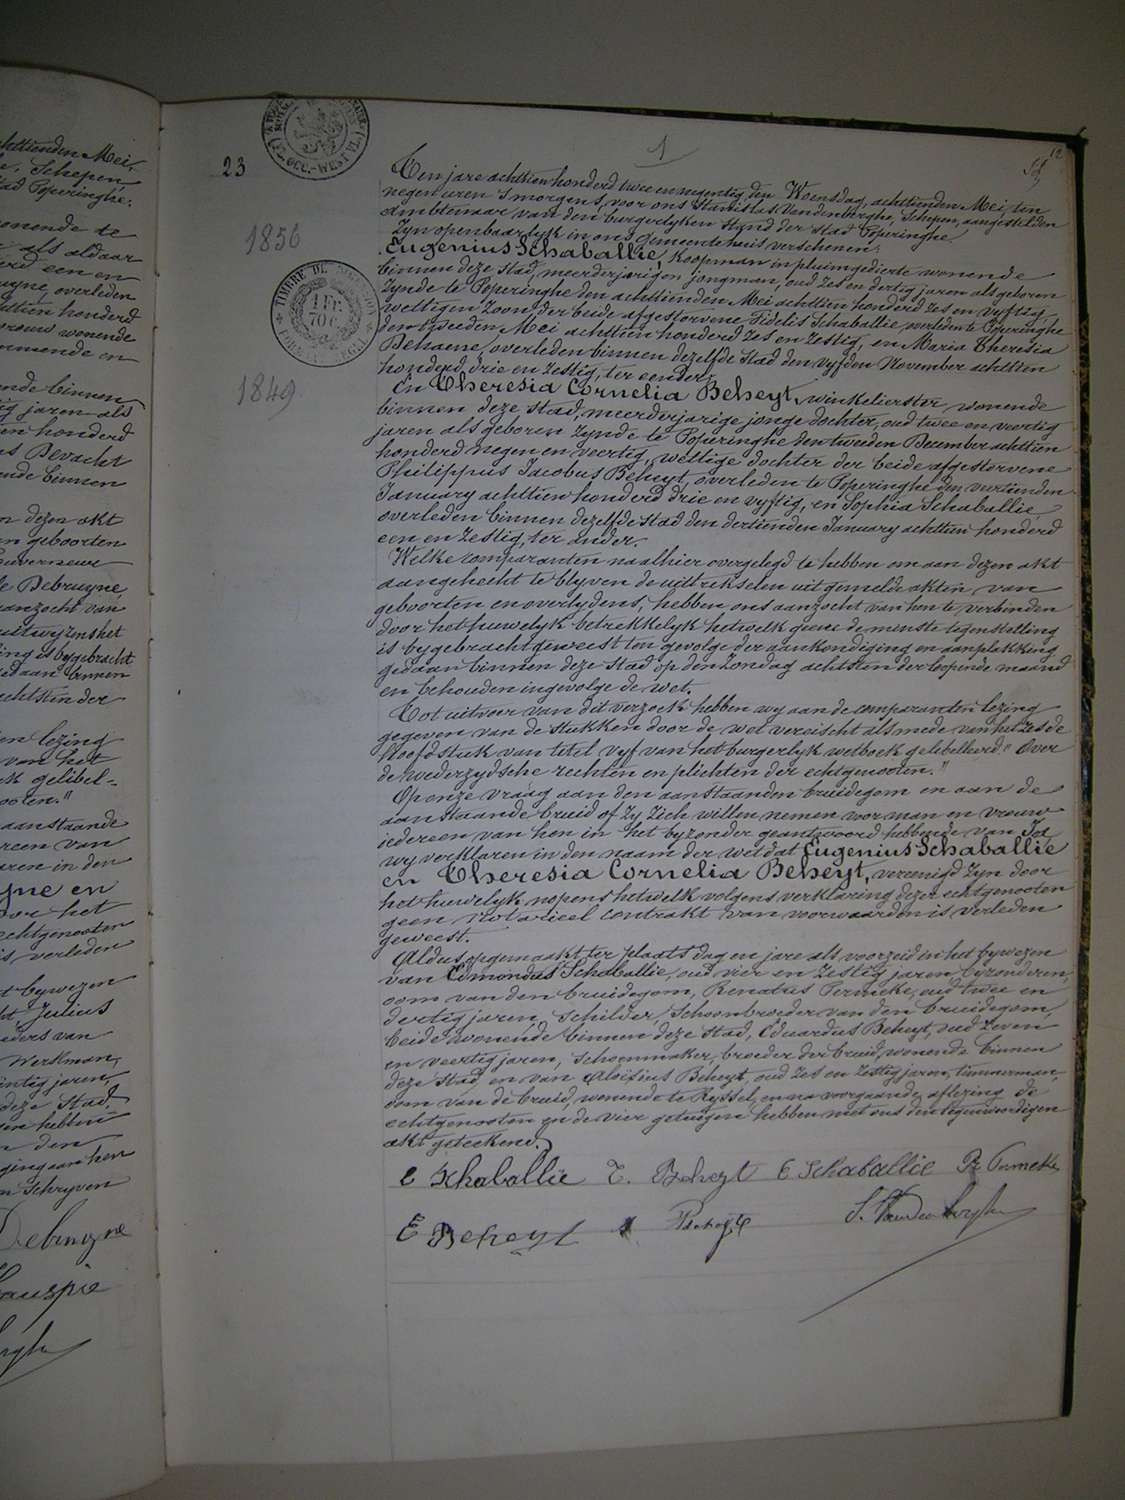 23
1
12
1856
1849
TIMBRE DE
1 FR.
Ten jare achttien honderd twee en negentig, den Woensdag, achttienden Mei, ten
negen uren 's morgens, voor ons Stanislas Vandenberghe, Schepen, aangestelden
Ambtenaar van den burgerlyken stand der stad Poperinghe
Zyn openbaarlyk in ons gemeentehuis verschenen:
Eugenius Schaballie, Koopman in pluimgedierte wonende
binnen deze stad, meerderjarigen jongman, oud zes en dertig jaren als geboren
zynde te Poperinghe den achttienden Mei achttien honderd zes en vyftig,
wettigen zoon der beide afgestorvene Fidelis Schaballie overleden te Poperinghe
den tweeden Mei achttien honderd zes en zestig, en Maria Theresia
Behaene, overleden binnen dezelfde stad den vyfden November achttien
honderd drie en zestig, ter eender.
En Theresia Cornelia Beheyt, winkelierster wonende
binnen deze stad, meerderjarige jonge dochter, oud twee en veertig
jaren als geboren zynde te Poperinghe den tweeden December achttien
honderd negen en veertig, wettige dochter der beide afgestorvene
Philippus Jacobus Beheyt, overleden te Poperinghe den veertienden
January achttien honderd drie en vyftig, en Sophia Schaballie,
overleden binnen dezelfde stad den dertienden January achttien honderd
een en zestig, ter ander.
Welke comparanten na alhier overgelegd te hebben om aan dezen akt
aangehecht te blyven de uittrekselen uit gemelde akten van
geboorten en overlydens, hebben ons aanzocht van hen te verbinden
door het huwelyk betrekkelyk hetwelk geene de minste tegenstelling
is bygebracht geweest ten gevolge der aankondiging en aanplakking
gedaan binnen deze stad op den Zondag achtsten der loopende maand
en behouden ingevolge de wet.
Tot uitvoer van dit verzoek hebben wy aan de comparanten lezing
gegeven van de stukken door de wet vereischt alsmede van het zesde
hoofdstuk van titel vyf van het burgerlyk wetboek gelibelleerd "Over
de wederzydsche rechten en plichten der echtgenooten."
Op onze vraag aan den aanstaanden bruidegom en aan de
aanstaande bruid of zy zich willen nemen voor man en vrouw
iedereen van hen in het byzonder geantwoord hebbende van Ja,
wy verklaren in den naam der wet dat Eugenius Schaballie
en Theresia Cornelia Beheyt, vereenigd zyn door
het huwelyk nopens hetwelk volgens verklaring dezer echtgenooten
geen notarieel contrakt van voorwaarden is verleden
geweest.
Aldus opgemaakt ter plaats dag en jare als voorzeid in het bywezen
van Edmondus Schaballie, oud vier en zestig jaren, byzonderen,
oom van den bruidegom, Renatus Perneke, oud twee en
dertig jaren, schilder, schoonbroeder van den bruidegom,
beide wonende binnen deze stad, Eduardus Beheyt, oud zeven
en veertig jaren, schoenmaker, broeder der bruid, wonende binnen
deze stad en van Aloïsius Beheyt, oud zes en zestig jaren, timmerman,
oom van de bruid, wonende te Ryssel, en na voorgaande aflezing de
echtgenooten en de vier getuigen hebben met ons den tegenwoordigen
akt geteekend.
E Schaballie T. Beheyt E Schaballie R. Perneke
E Beheyt Beheyt S. Vandenberghe